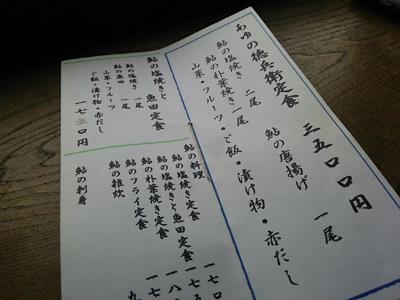 あゆの徳兵衛定食 三五〇〇円
鮎の塩焼き 二尾
鮎の朴葉焼き 一尾 鮎の唐揚げ 一尾
山菜・フルーツ・ご飯・漬け物・赤だし
鮎の塩焼きと魚田定食
鮎の塩焼き 一尾
鮎の魚田 一尾
山菜・フルーツ
ご飯・漬け物・赤だし
一七三〇円
鮎の料理
鮎の塩焼き定食
鮎の塩焼きと魚田定食
鮎の朴葉焼き定食
鮎のフライ定食
鮎の雑炊
鮎の刺身